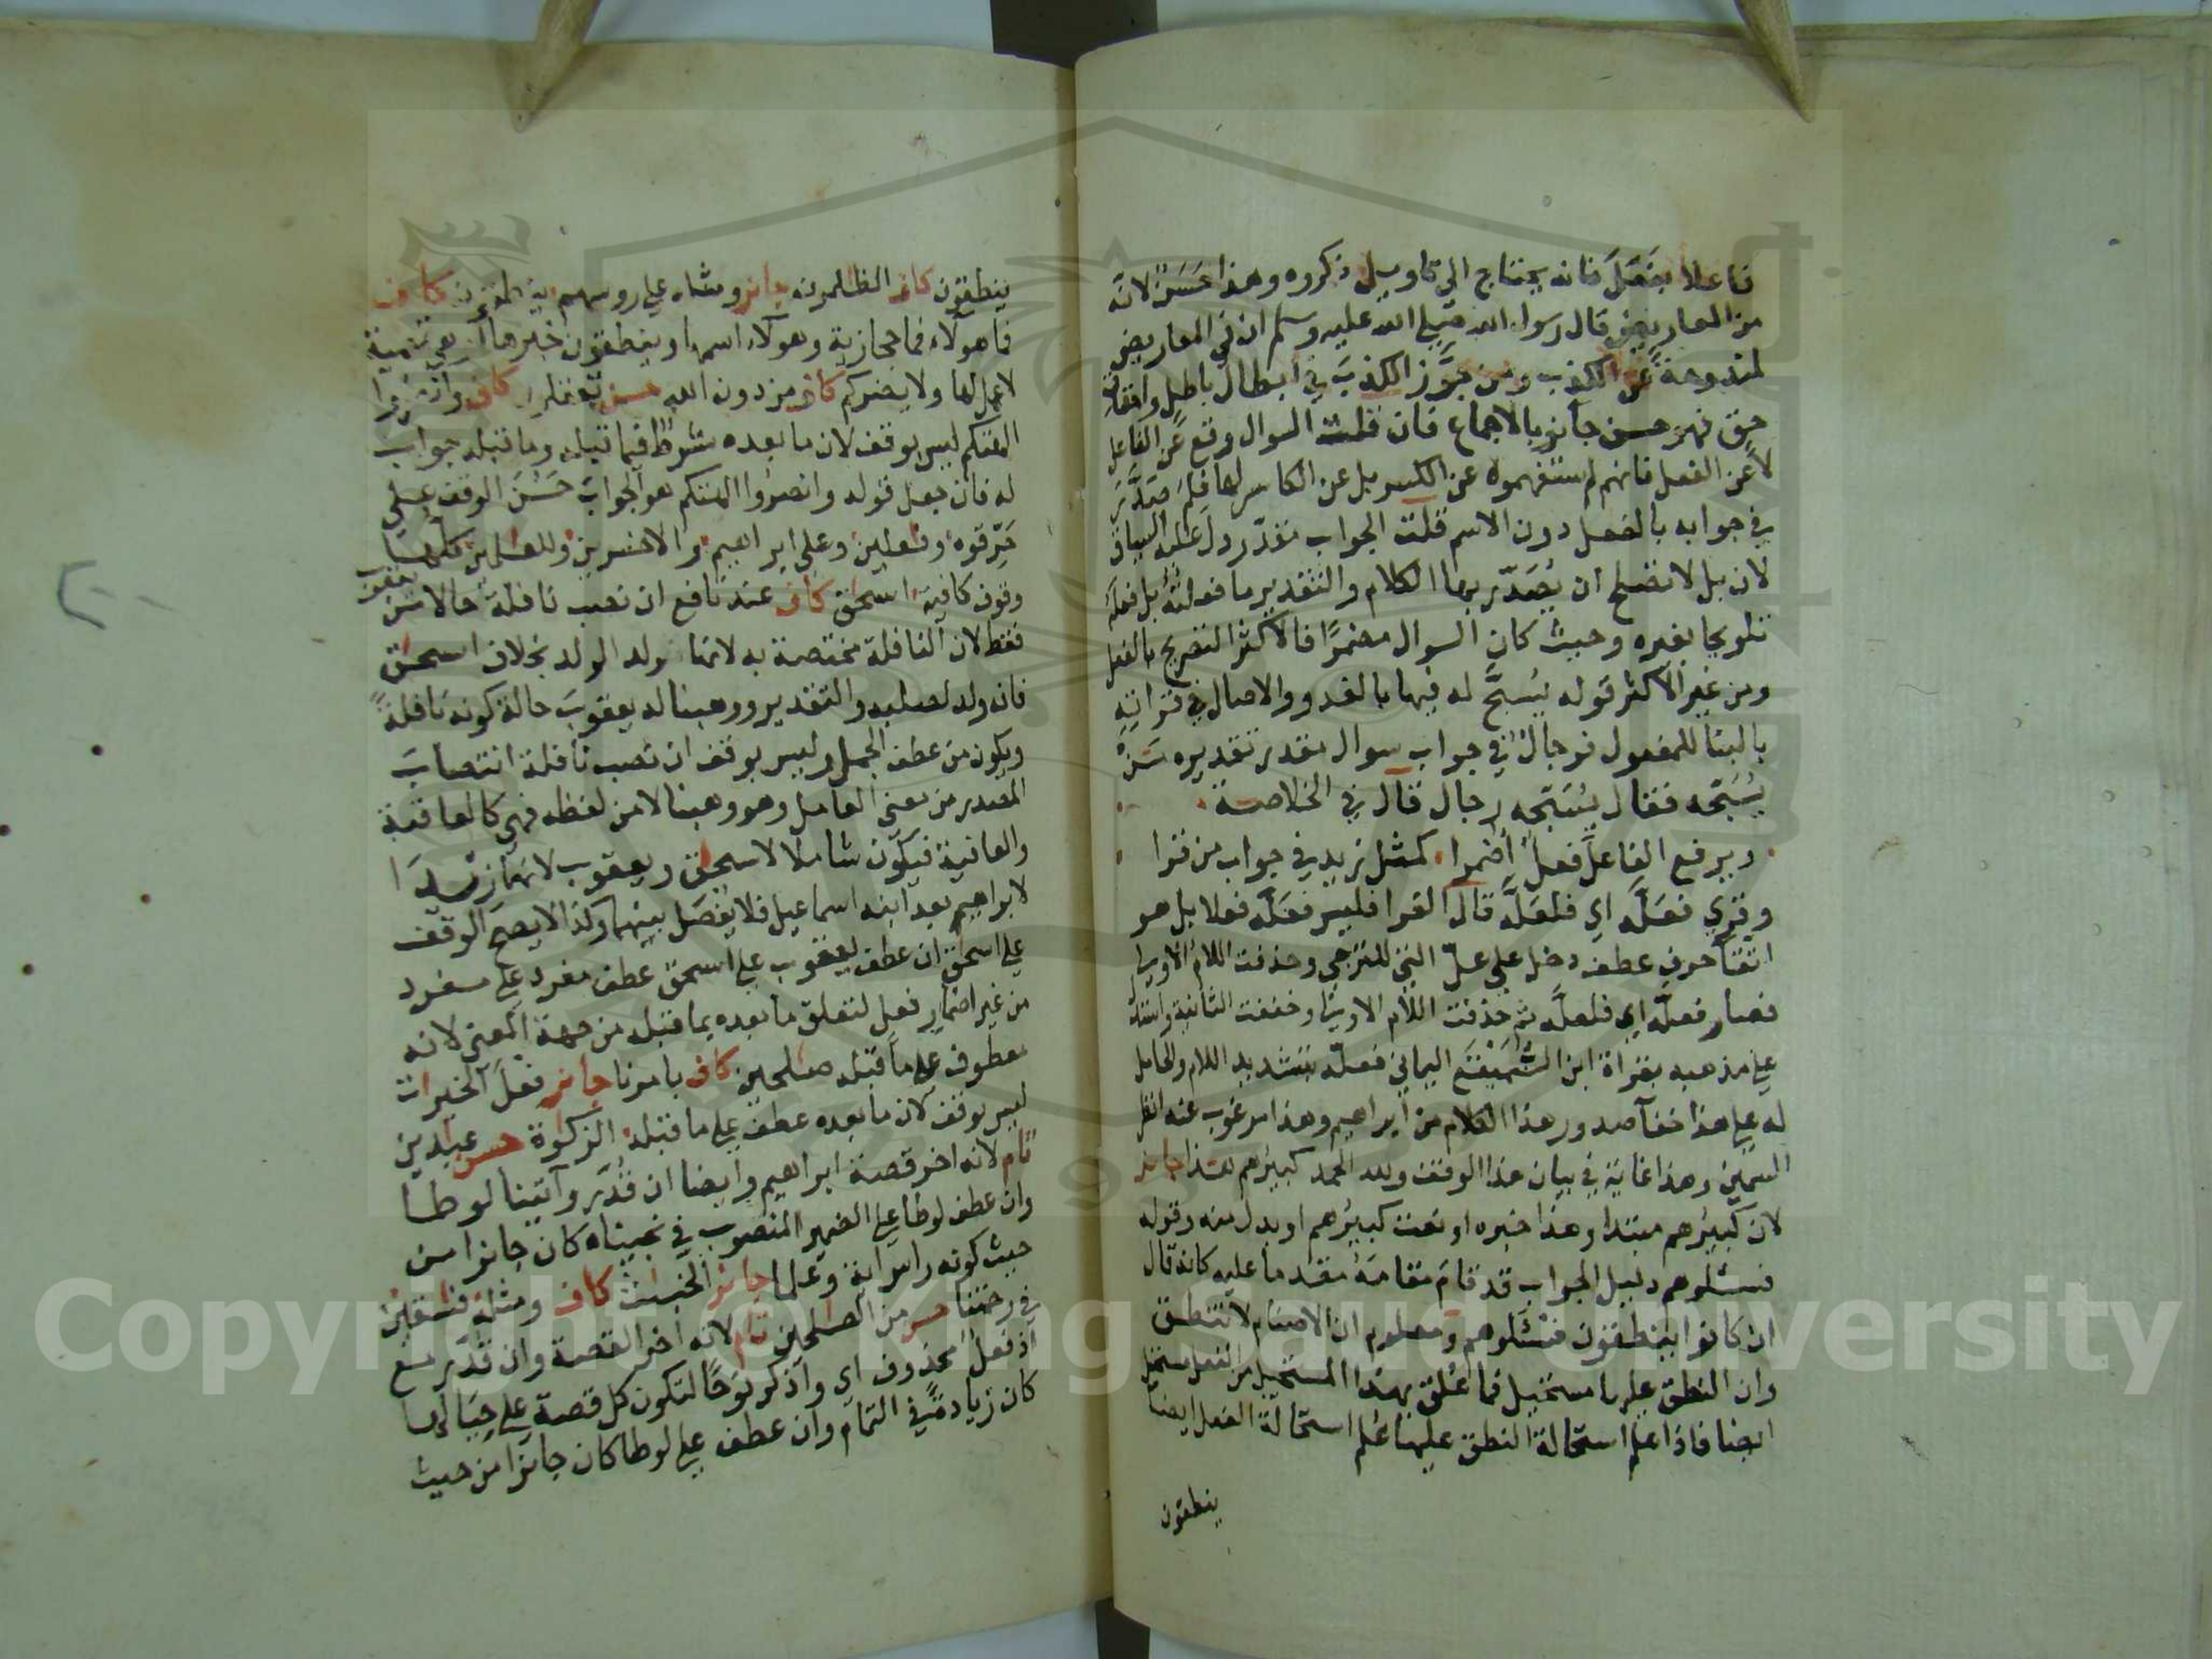 فاعلا بفَعَلَ فانه يحتاج الى تاويل ذكروه وهذا حَسَنٌ لانه
من المعاريض قال رسول الله صلى الله عليه وسلم ان في المعاريض
لمندوحةً عن الكذب ومن جوَّز الكذبَ في ابطال باطل واحقاق
حق فهو حسن جائز بالاجماع فان قلت السوال وقع عن الفاعل
لا عن الفعل فانهم لم يستفهموه عن الكسر بل عن الكاسر لها فلم صَدَّر
في جوابه بالفعل دون الاسم قلت الجواب مقدّر دل عليه السياق
لان بل لا تصلح ان يُصَدّر بها الكلام والتقدير ما فعلتُه بل فعله
تلويحا بغيره وحيث كان السوال مضمرًا فالاكثر التصريح بالفعل
ومن غير الاكثر قوله يُسبَّح له فيها بالغدو والاصال في قراءة
بالبنا للمفعول فرجالٌ في جواب سوال مقدر تقديره مَنْ
يُسَبّحه فقال يُسَبّحه رجال قال في الخلاصة
ويرفع الفاعلَ فعلٌ اُضمرا كمثل زيد في جواب من قرا
وقري فعَلَّه اي فلعَلَّه قال الفرا فليس فَعَلَّه فعلا بل هو
التقا حرف عطف دخل على علّ التي للترجي وحذفت اللام الاولى
فصار فعلّه اي فلعلَّه ثم حذفت اللام الاولى وخففت الثانية واستدل
على مذهبه بقراة ابن السَّمَيْفَع اليماني فعلّه بتشديد اللام والحامل
له على هذا خفآ صدور هذا الكلام من ابراهيم وهذا مرغوب عنه انظر
السمين وهذا غاية في بيان هذا الوقف ولله الحمد كبيرهم هذا جائز
لان كبيرُهم مبتدا وهذا خبره او نعت كبيرُهم او بدل منه وقوله
فسئلوهم دليل الجواب قد قام مقامَهُ مقدما عليه كانه قال
ان كانوا ينطقون فسئلوهم ومعلوم ان الاصنام لا تنطق
وان النطق عليها مستحيل فما عُلّق بهذا المستحيل من الفعل مستحيل
ايضا فاذا علم استحالة النطق عليها عُلم استحالة الفعل ايضا
ينطقون
ينطقون كاف الظلمون جائز ومثله على رءوسهم ينطقون كاف
فما هؤلاء فما حجازية وهؤلاء اسمها وينطقون خبرها او هي تميمية
لا عمل لها ولا يضركم كاف من دون الله حسن تعقلون كاف وانصروا
الهتكم ليس بوقف لان ما بعده شرط فيما قبله وما قبله جواب
له فان جعل قوله وانصروا الهتكم هو الجوابَ حَسُنَ الوقف على
حَرّقوه وفعلين وعلى ابراهيم والاخسرين وللعلمين كلها
وقوف كافية اسحق كاف عند نافع ان نصب نافلة حالا من يعقوب
فقط لان النافلة مختصة به لانها ولد الولد بخلاف اسحق
فانه ولد لصلبه والتقدير ووهبنا له يعقوبَ حالة كونه نافلةً
ويكون من عطف الجمل وليس بوقف ان نصب نافلة انتصابَ
المصدر من معنى العامل وهو وهبنا لا من لفظه فهي كالعاقبة
والعافية فيكون شاملا لاسحق ويعقوب لانهما زيدا
لابراهيم بعد ابنه اسماعيل فلا يفصل بينهما وكذا لا يصح الوقف
على اسحق ان عطف يعقوب على اسحق عطف مفرد على مفرد
من غير اضمار فعل لتعلق ما بعده بما قبله من جهة المعنى لانه
معطوف على ما قبله صلحين كاف بامرنا جائز فعلَ الخيرات
ليس بوقف لان ما بعده عطف على ما قبله الزكوة حسن عبدين
تام لانه اخر قصة ابراهيم وايضا ان قُدّر وآتينا لوطا
وان عطف لوطا على الضمير المنصوب في نجيناه كان جائزا من
حيث كونه راس اية وعلما جائز الخبئث كاف ومثله فسقين
في رحمتنا حسن من الصلحين تام لانه اخر القصة وان قدّر مع
اذ فعلٌ محذوف اي واذكر نوحًا لتكون كل قصة على حِيَالها
كان زيادةً في التمام وان عطف على لوطا كان جائزا من حيث
Copyright © King Saud University